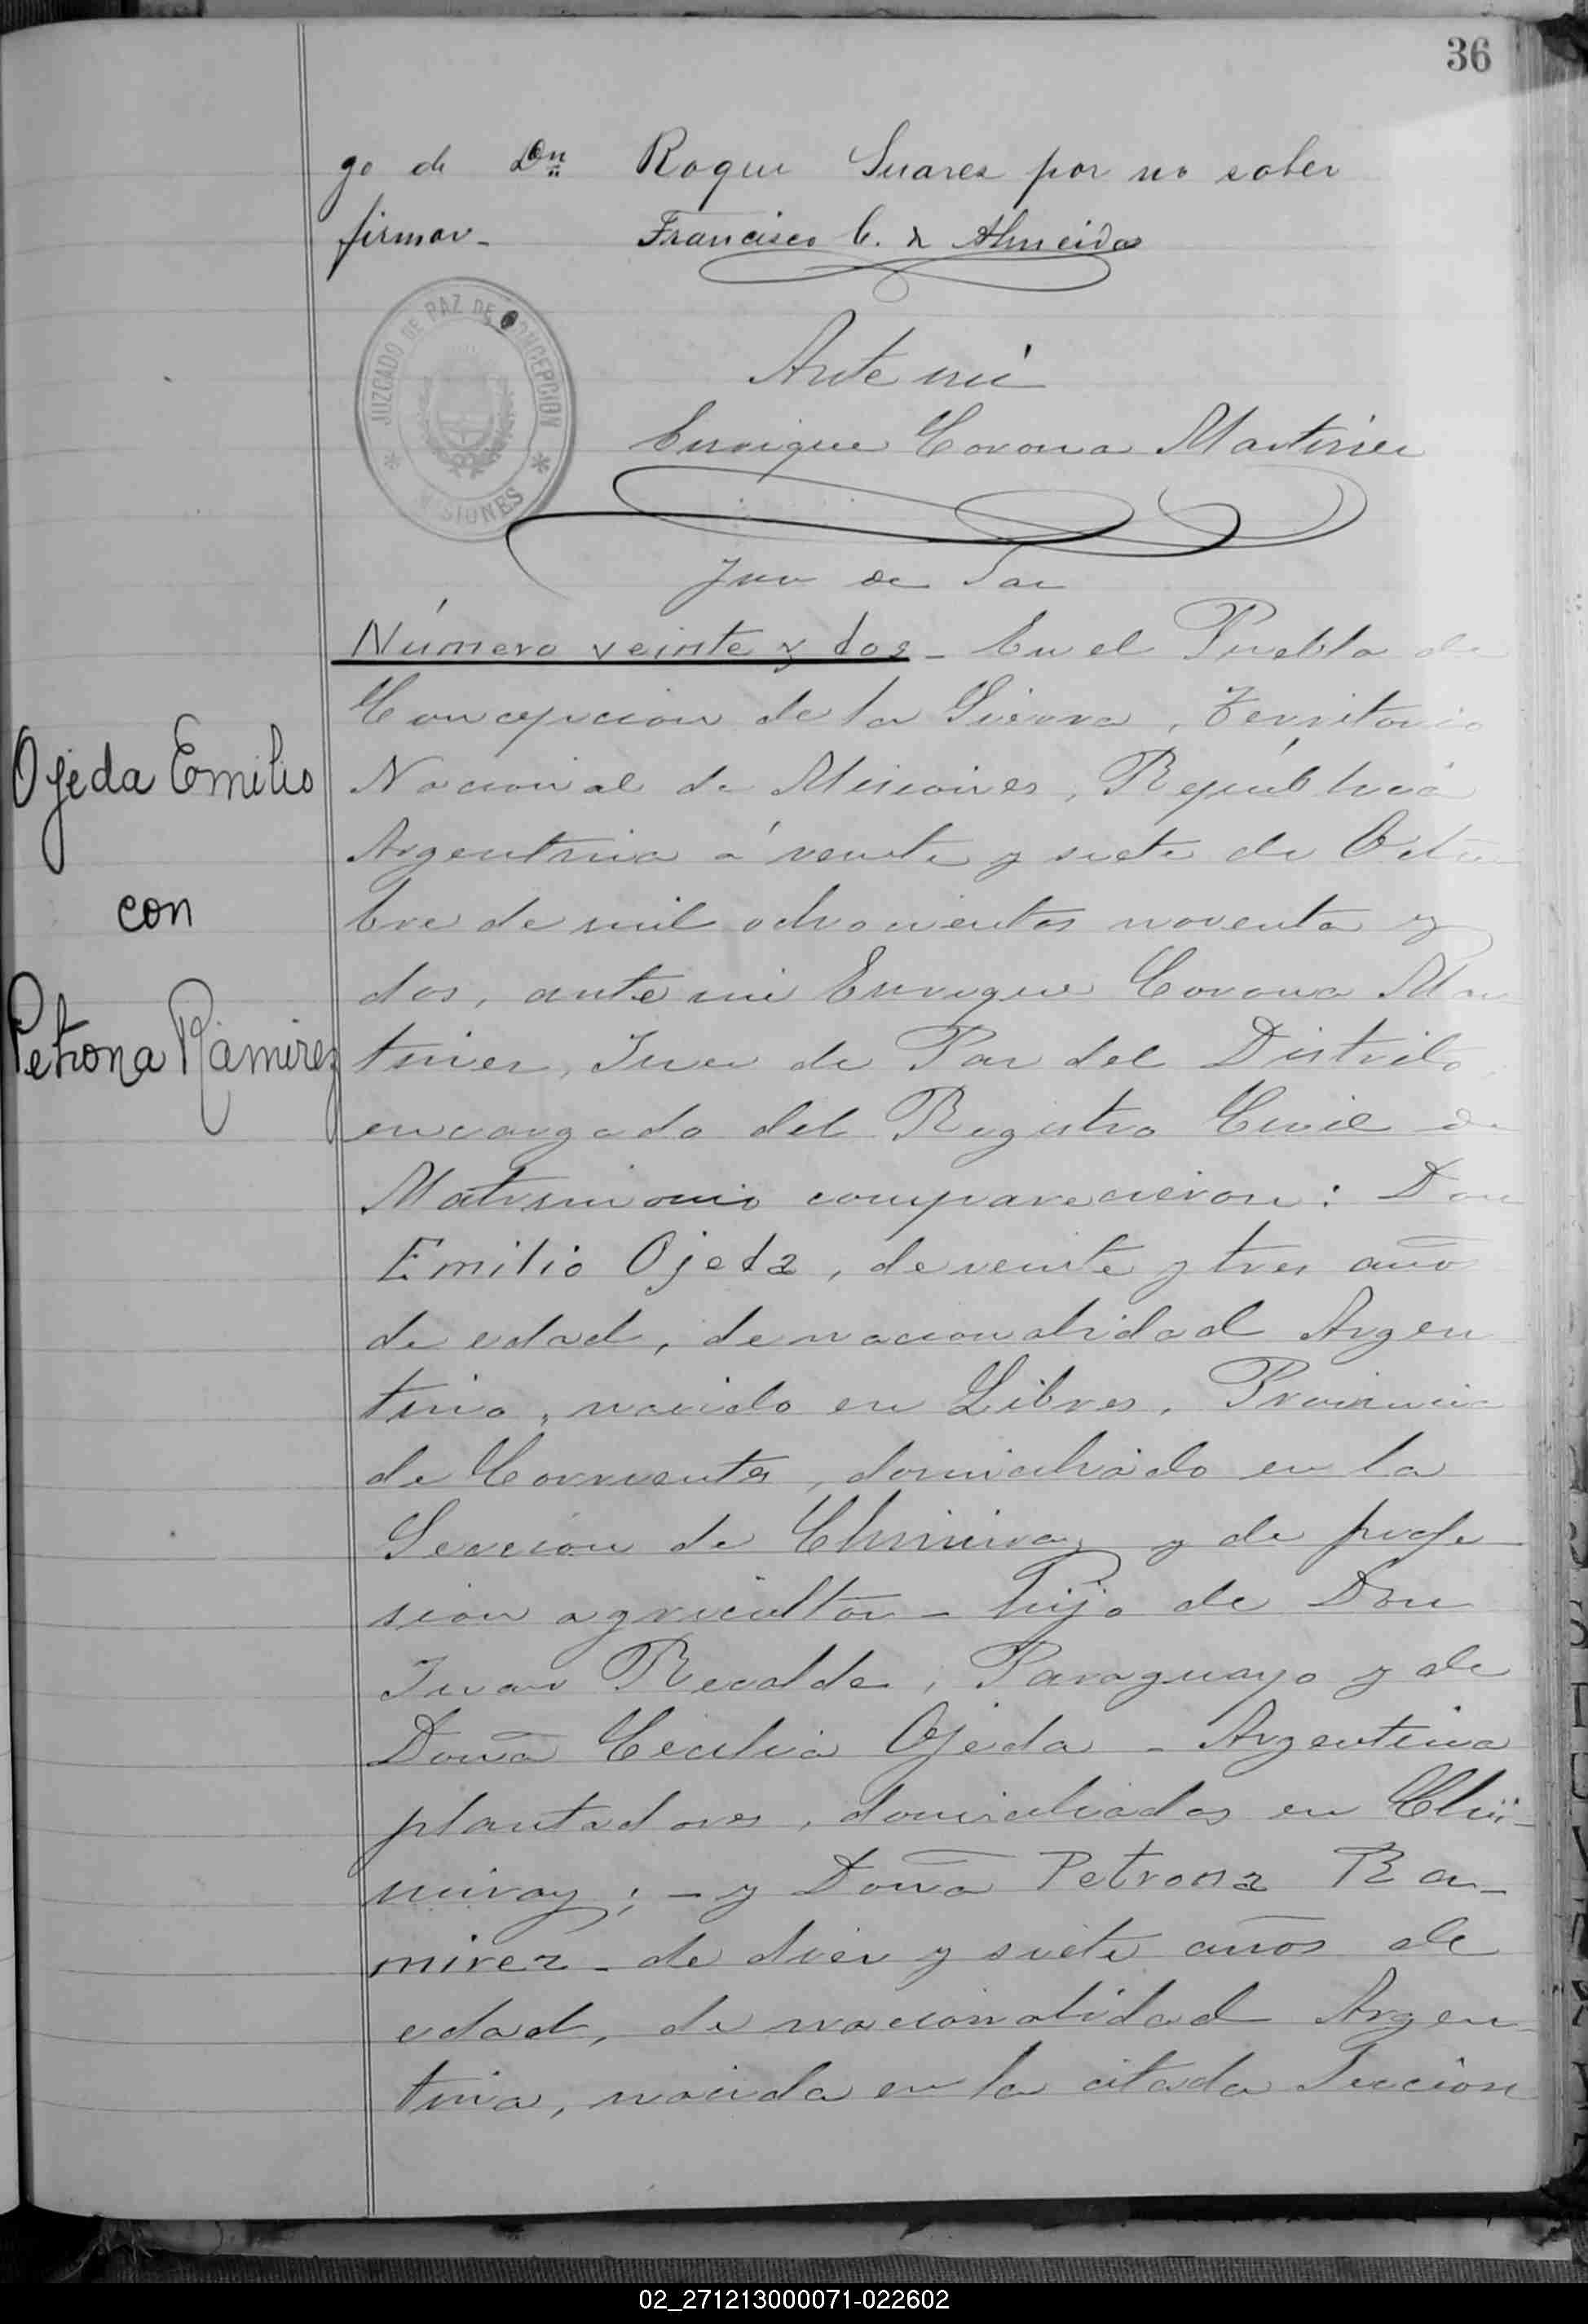 36
go de Dn Roque Suares por no saber
firmar - Francisco C. de Almeida
JUZGADO DE PAZ DE CONCEPCION
MISIONES
Ante mí
Enrique Corona Martinez
Juez de Paz
Número veinte y dos - En el Pueblo de
Concepcion de la Sierra, Territorio
Nacional de Misiones, República
Argentina á veinte y siete de Octu
bre de mil ochocientos noventa y
dos, ante mi Enrique Corona Mar
tinez, Juez de Paz del Distrito,
encargado del Registro Civil de
Matrimonio comparecieron: Don
Emilio Ojeda, de veinte y tres años
de edad, de nacionalidad Argen
tino, nacido en Libres, Provincia
de Corrientes, domiciliado en la
Seccion de Chimiray y de profe
sion agricultor - hijo de Don
Juan Recalde, Paraguayo y de
Doña Cecilia Ojeda - Argentina
plantadores, domiciliados en Chi-
miray; - y Doña Petrona Ra-
mirez - de diez y siete años de
edad, de nacionalidad Argen
tina, nacida en la citada Seccion
Ojeda Emilio
con
Petrona Ramirez
02_271213000071-022602